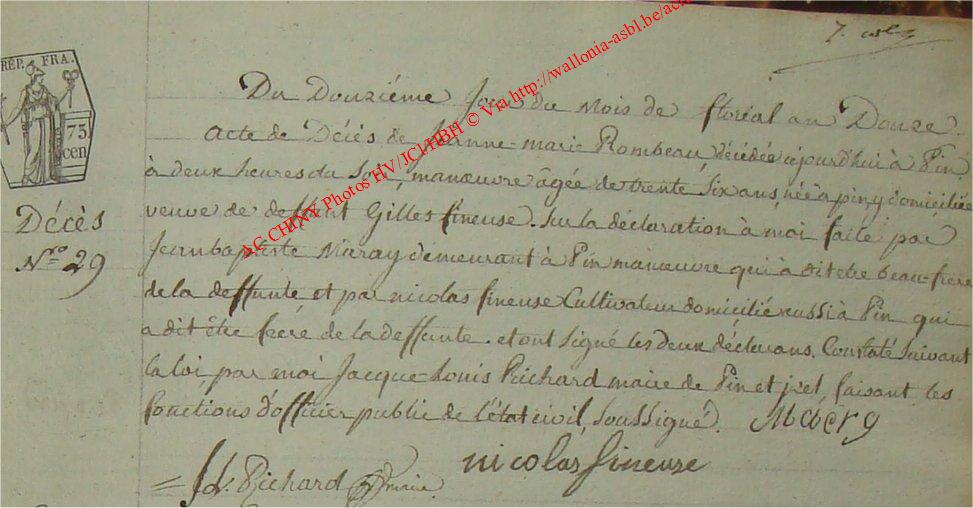 RÉP. FRA.
75
cen
Décès
N.º 29
Du Douziéme Jour du Mois de floréal an Douze.
acte de Décès de Jeanne-marie Rombeau, décédée cejourd'hui à Pin,
à deux heures du Soir, manœuvre âgée de trente Six ans, née à pin y domiciliée
veuve de deffunt Gilles fineuse. Sur la déclaration à moi faite par
Jeanbaptiste Maray demeurant à Pin manœuvre qui à dit être beau-frere
de la deffunte et par nicolas fineuse Cultivateur domicilié aussi à Pin qui
a dit être frere de la deffunte. et ont Signé les Deux déclarans. Constaté Suivant
la loi, par moi Jacque Louis Richard maire de Pin et faisant les
fonctions d'officier public de l'état civil, Soussigné.
nicolas fineuse
Richard maire
AC CHINY Photos HV/JCI/HBH © Via http://wallonia-asbl.be/act